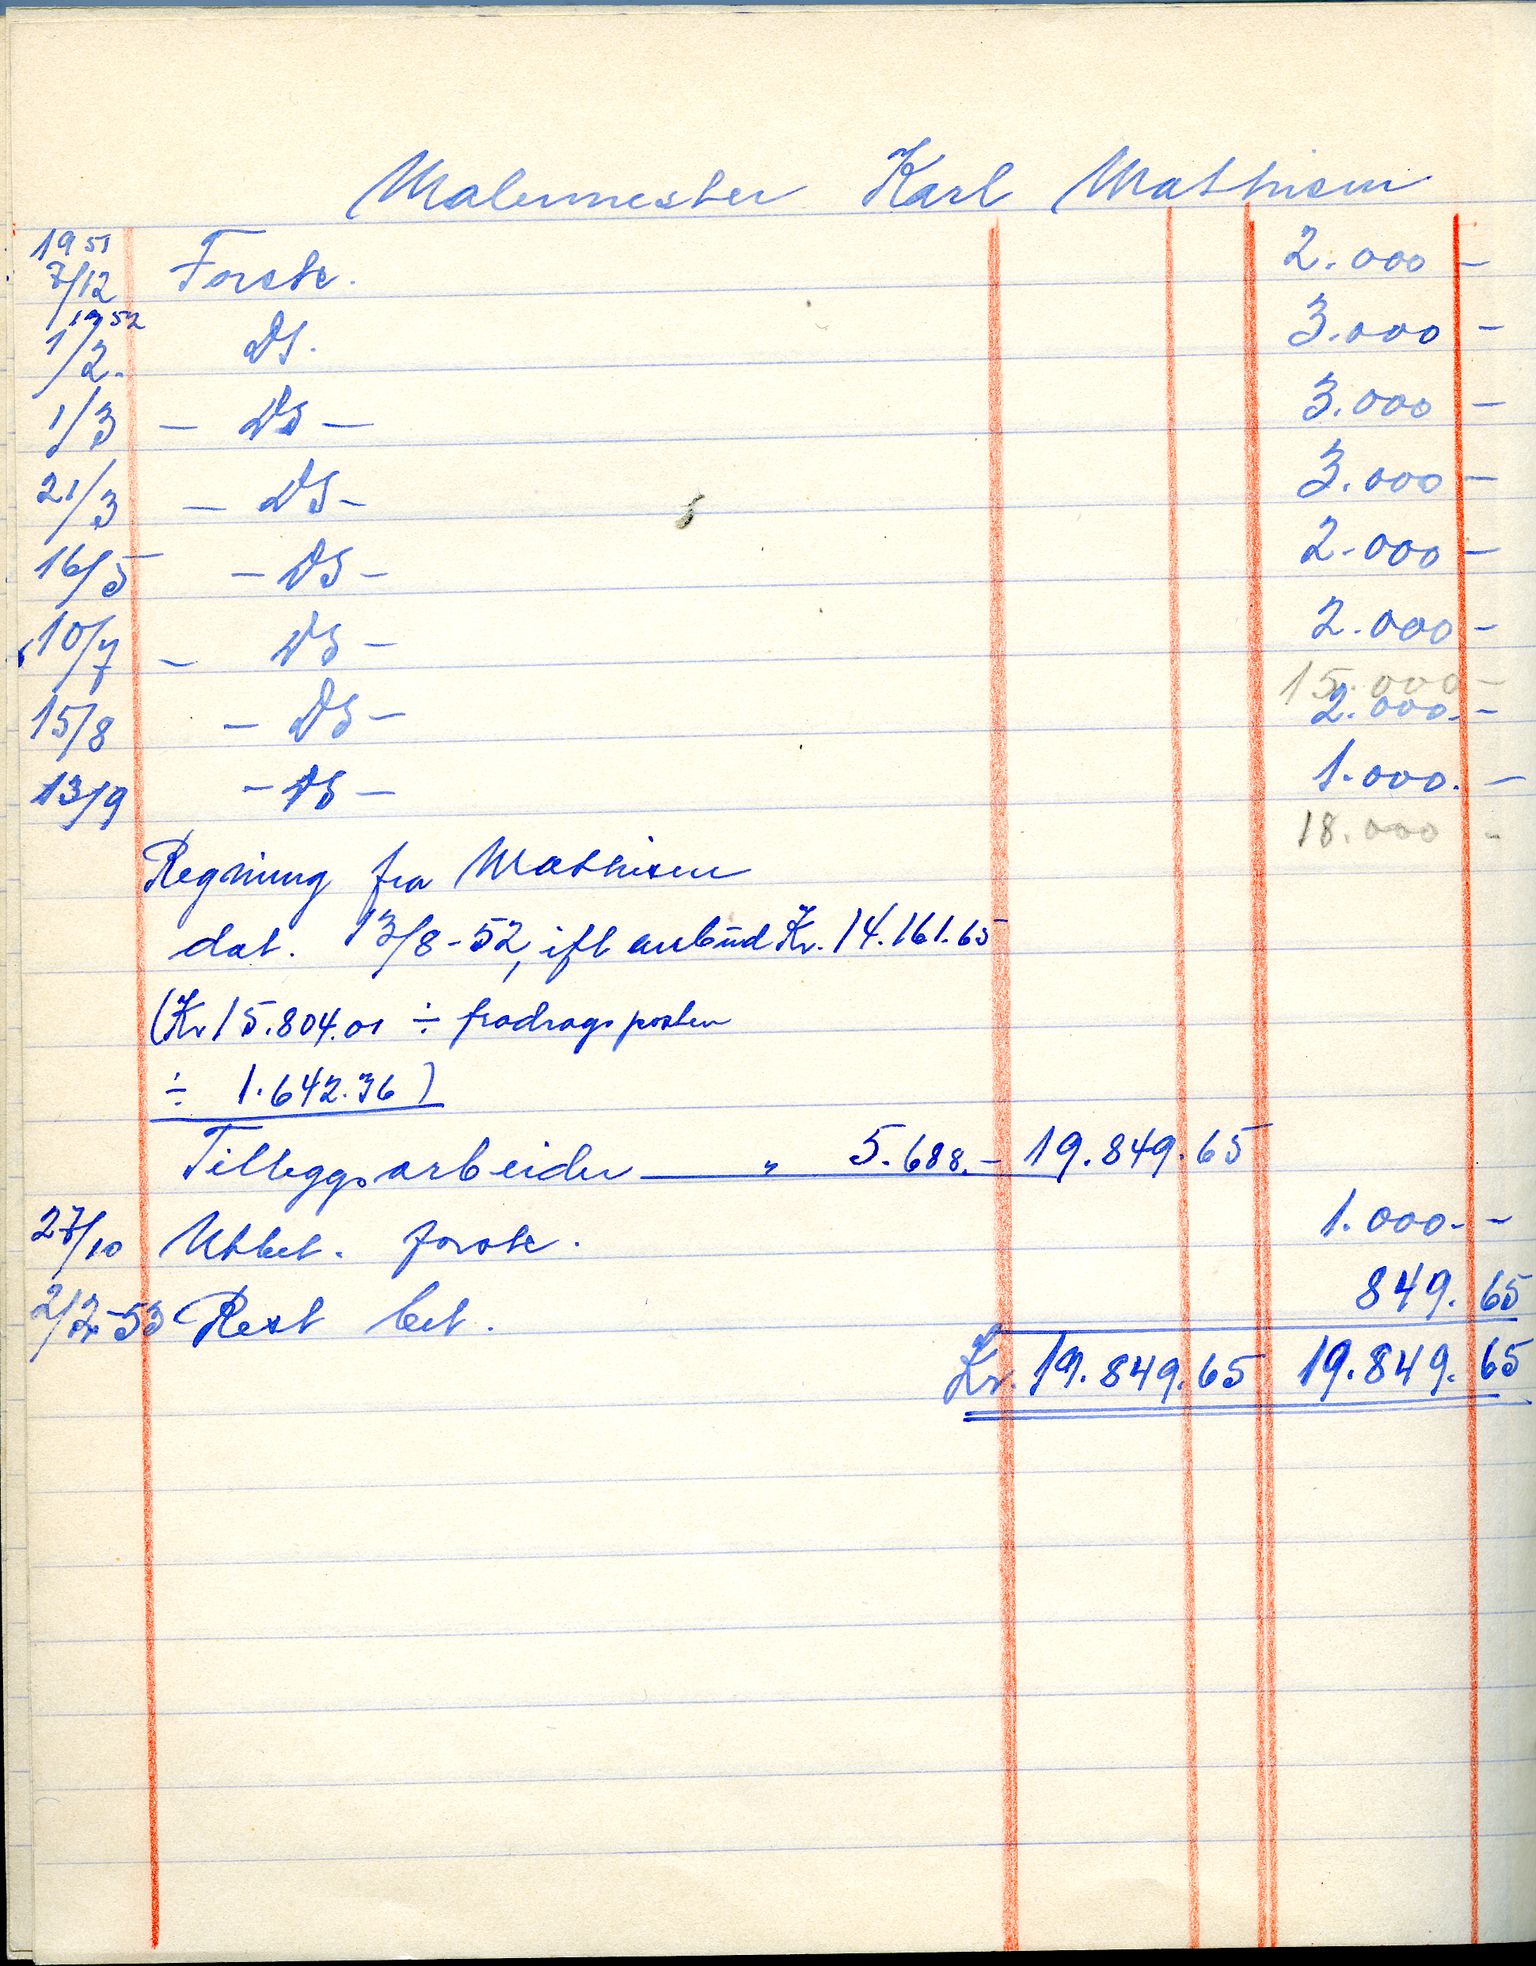 Malermester Karl Mathisen
1951
7/12 Forsk. 2.000 -
1952
1/2. DS. 3.000 -
1/3 - DS - 3.000 -
21/3 - DS - 3.000 -
16/5 - DS - 2.000 -
10/7 - DS - 2.000 -
15.000 -
15/8 - DS - 2.000. -
13/9 - DS - 1.000. -
18.000 -
Regning fra Mathisen
dat. 13/8-52, ifl anbud Kr. 14.161.65
(Kr 15.804.01 ÷ fradragsposten
÷ 1.642.36)
Tilleggsarbeider " 5.688.- 19.849.65
27/10 Utbet. forsk. 1.000. -
2/2-53 Rest bet. 849.65
Kr. 19.849.65 19.849.65